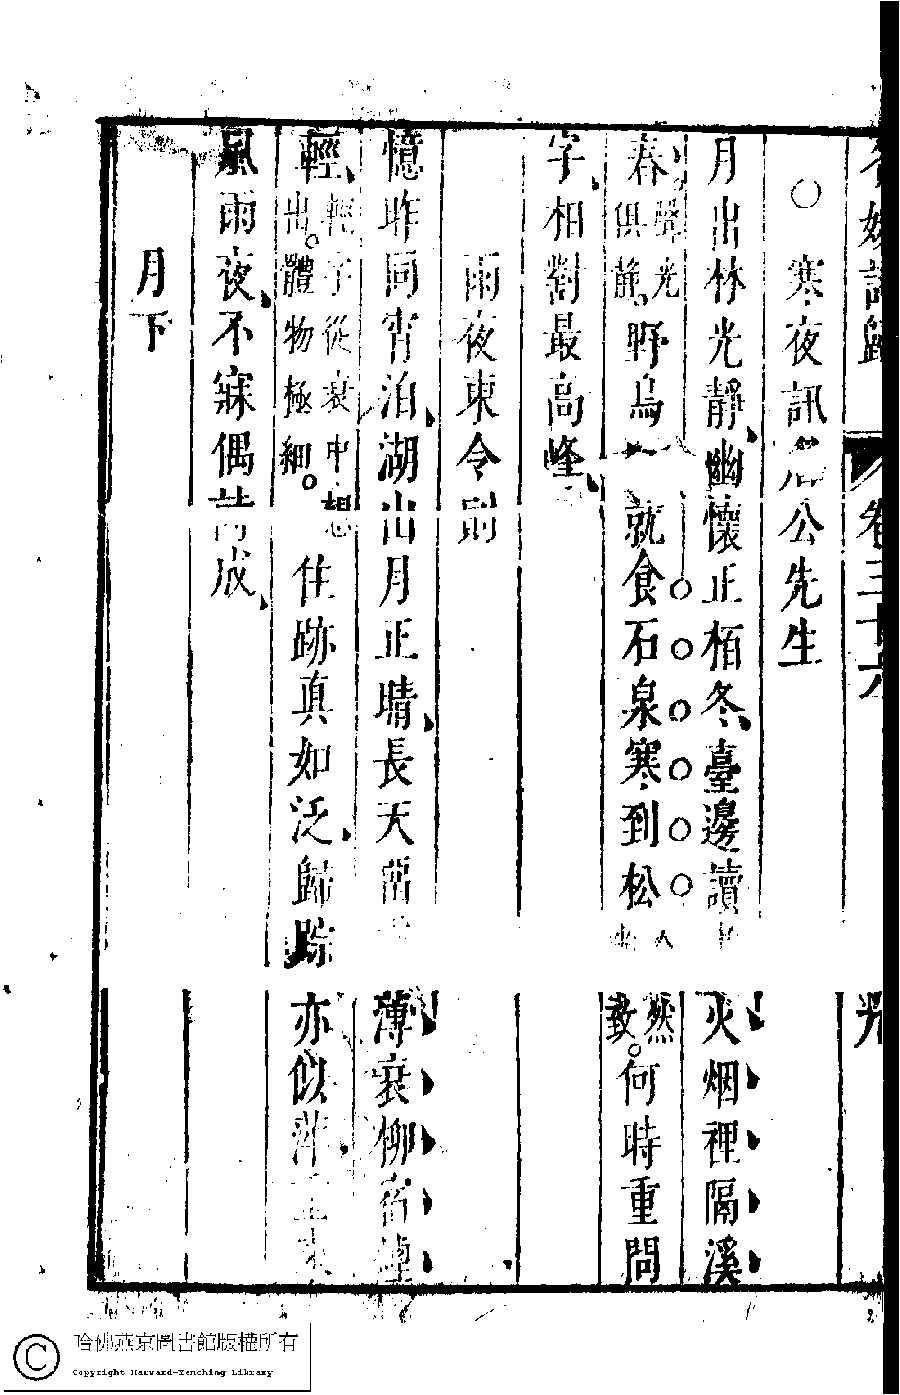 名媛詩歸 卷三十六
○寒夜訊 公先生
月出林光靜幽懷正栢冬臺邊讀 火烟裡隔溪
春聲光俱靜野鳥 就食石泉寒到松 然致何時重問
字相對最高峰
雨夜柬令則
憶昨同宵泊湖出月正晴長天 薄衰柳宿
輕輕字從衰中想出體物極細 住跡真如泛歸踪亦似萍
風雨夜不寐偶 成
月下
哈佛燕京圖書館版權所有
Copyright Harvard-Yenching Library